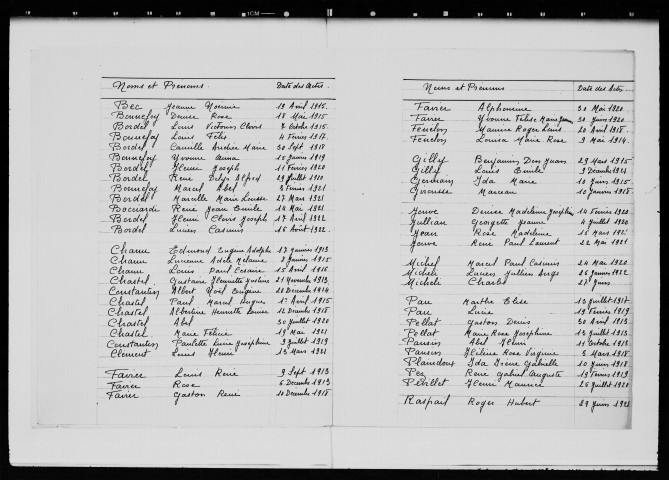 1CM
Noms et Prénoms Date des Actes
Bec Jeanne Noemie 19 Avril 1915.
Bonnefoy Denise Rose 18 Mai 1915
Bordel Louis Victorin Clovis 7 Octobre 1915.
Bonnefoy Louis Félix 4 Février 1918
Bordel Camille Marie 30 Sept 1918
Bonnefoy Yvonne Anna 15 Janvier 1919
Bordel Henri Joseph 11 Février 1920
Bordel René Alfred 29 Juillet 1920
Bonnefoy Marcel Abel 8 Février 1921
Bordel Marcelle Marie Louise 27 Mars 1921
René Jean Emile 14 Mai 1921
Bordel Henri Clovis Joseph 17 Avril 1922
Bordel Lucien Casimir 16 Août 1922.
Charra Edmond Eugène Adolphe 17 Janvier 1913
Charra Lucienne Adèle Melanie 8 Janvier 1915
Charra Louis Paul Cesaire 15 Avril 1916
Chastel Gustave 21 Novembre 1913
Constantin Albert Noël Eugène 20 Décembre 1914
Chastel Paul Marcel 1er Avril 1915
Chastel Albertine Henriette Louise 12 Décembre 1918
Chastel Abel 30 Juillet 1920
Chastel Marie Félicie 19 Mai 1921
Constantin Paulette Lucie Joséphine 9 Juillet 1919
Clement Louis Henri 13 Mars 1921
Favier Louis René 9 Sept 1913
Favier Rose 6 Décembre 1913
Favier Gaston René 10 Décembre 1918
Noms et Prénoms Date des Actes
Favier Alphonsine 30 Mai 1920
Favier Yvonne Félise Marie 30 Juin 1920
Fenelon Maurice Roger Louis 20 Avril 1918.
Fenelon Louisa Marie Rose 9 Mai 1914.
Gilly Benjamin Don Juan 29 Mars 1915
Gilly Louis Emile 9 Décembre 1921
Germain Ida Marie 10 Juin 1915
Girousse Marceau 10 Janvier 1918
Jouve Denise Madeleine Joséphine 14 Février 1920
Jullian Georgette Jeanne 4 Juillet 1920
Jean Rose Madeleine 15 Mars 1921
Jouve René Paul Laurent 22 Mai 1921
Michel Marcel Paul Casimir 24 Mai 1920
Michel Lucien Jullien Serge 26 Janvier 1922
Michel Charles 27 Juin
Pau Marthe Elise 13 Juillet 1917
Pau Lucie 19 Février 1919
Pellat Gaston Denis 30 Avril 1913
Pellat Marie Rose Joséphine 13 Juillet 1913
Pansin Abel Henri 11 Octobre 1913
Pansin Hélène Rose Virginie 5 Mars 1918
Plaindoux Ida Gabrielle 10 Juin 1918
René Gabriel Auguste 19 Février 1919
Henri Maurice 26 Juillet 1920
Raspail Roger Hubert 29 Juin 1921